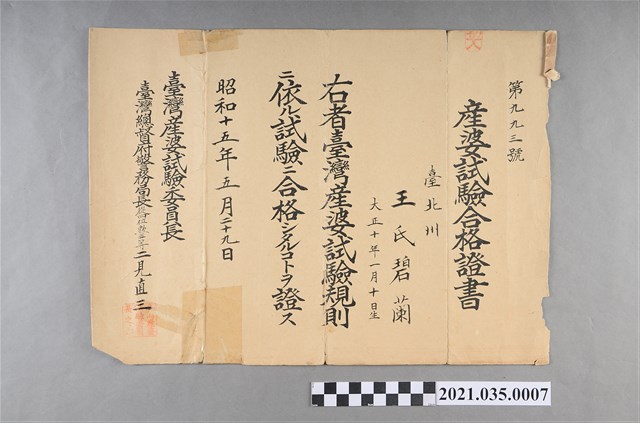 第九九三號
産婆試驗合格證書
臺北州
王氏碧蘭
大正十年一月十日生
右者臺灣産婆試驗規則
ニ依ル試驗ニ合格シタルコトヲ證ス
昭和十五年五月二十九日
臺灣産婆試驗委員長
臺灣總督府警務局長 二見直三
2021.035.0007